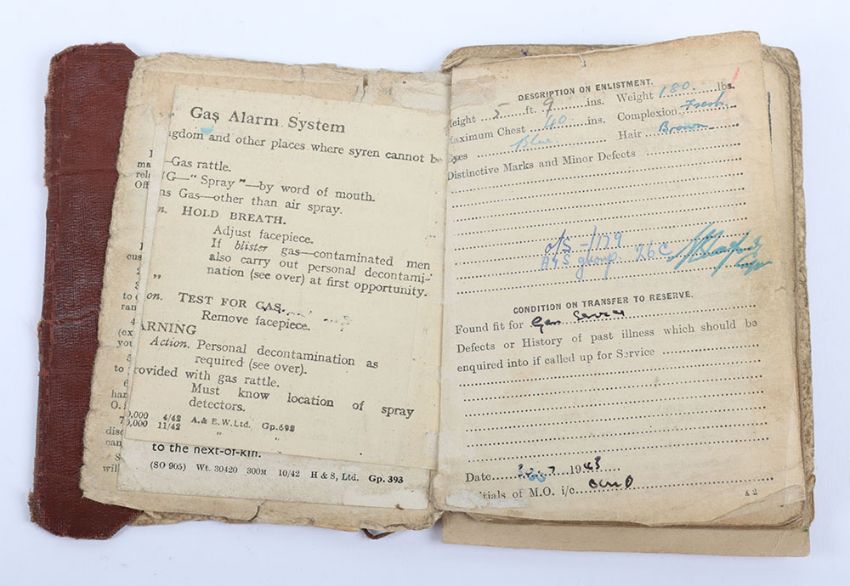 Gas Alarm System
ngdom and other places where syren cannot be
—Gas rattle.
NG—" Spray "—by word of mouth.
ns Gas—other than air spray.
on. HOLD BREATH.
Adjust facepiece.
If blister gas—contaminated men
also carry out personal decontami-
nation (see over) at first opportunity.
on. TEST FOR GAS.
Remove facepiece.
ARNING
Action. Personal decontamination as
required (see over).
rovided with gas rattle.
Must know location of spray
detectors.
0,000 4/42 A. & E.W. Ltd. Gp. 698
0,000 11/42 " "
to the next-of-kin.
(SO 905) Wt. 30420 300M 10/42 H & S, Ltd. Gp. 393
DESCRIPTION ON ENLISTMENT.
Height 5 ft. 9 ins. Weight 180 lbs.
Maximum Chest 40 ins. Complexion Fresh
Eyes Blue Hair Brown
Distinctive Marks and Minor Defects
A & S group. 26 C
CONDITION ON TRANSFER TO RESERVE.
Found fit for
Defects or History of past illness which should be
enquired into if called up for Service
Date 1943
itials of M.O. i/c
A 2